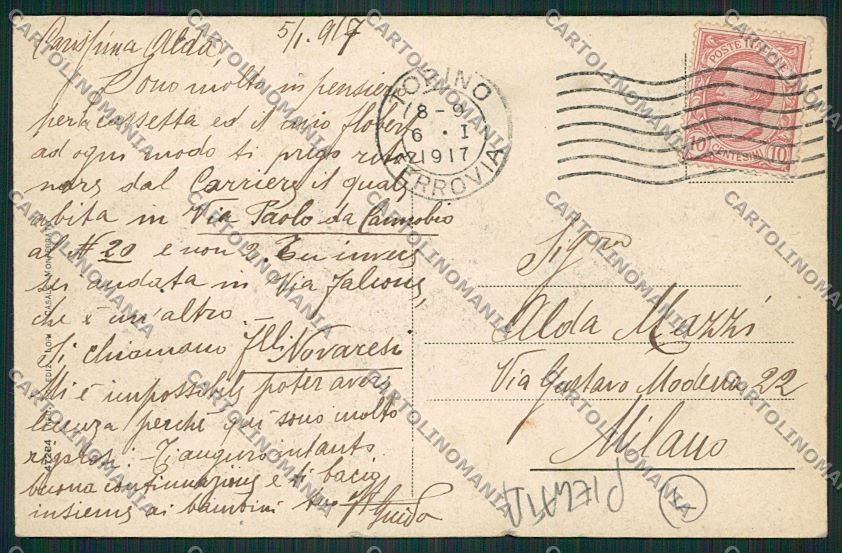 5/1. 917
Carissima Alda,
Sono molto in pensiero
per cassetta ed il mio flobert
ad ogni modo ti prego ritor
nare dal Carriere il quale
abita in Via Paolo da Cannobio
al N 20 e non 2. Tu invece
sei andata in Via Falcone,
che è un'altro.
Si chiamano Flli Novaresi
Mi è impossibile poter avere
licenza perché qui sono molto
rigorosi. T'auguro intanto
buona continuazione e ti bacio
insieme ai bambini tuo
Guido
TORINO
18-19
6 . I
1917
FERROVIA
POSTE ITALIANE
10 CENTESIMI 10
Sigra
Alda Mazzi
Via Gustavo Modena 22
Milano
PIEGATA
47284
CASALE MONFERRATO
CARTOLINOMANIA